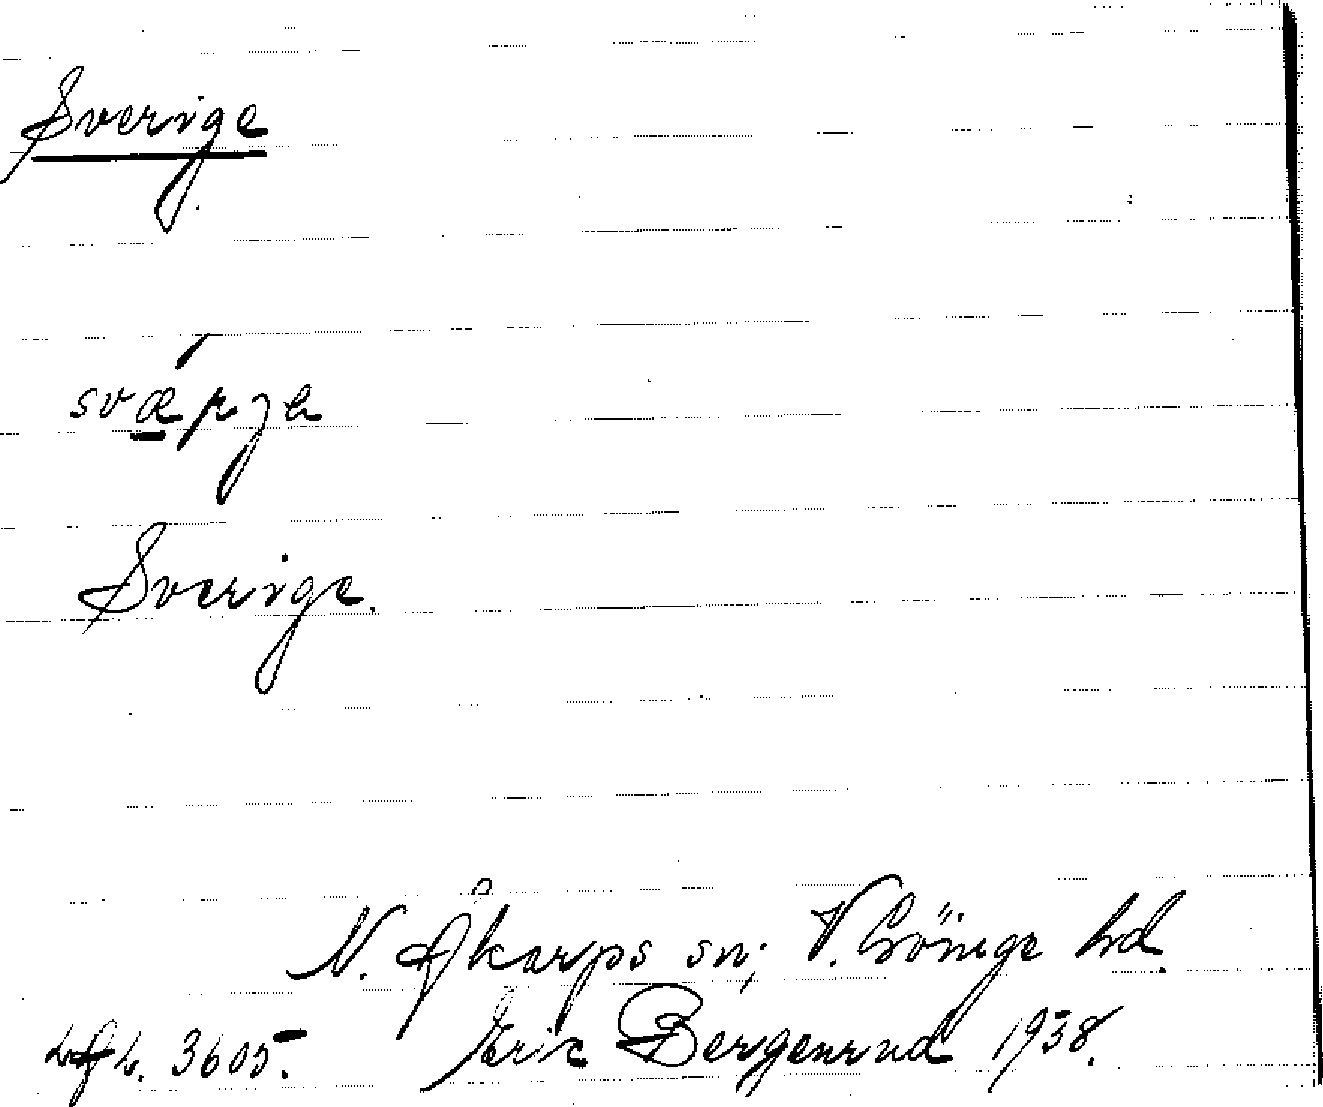 Sverige
Sverige.
N. Åkarps sn; V. Göinge hd.
LAL. 3605.
Eric Bergenrud 1938.